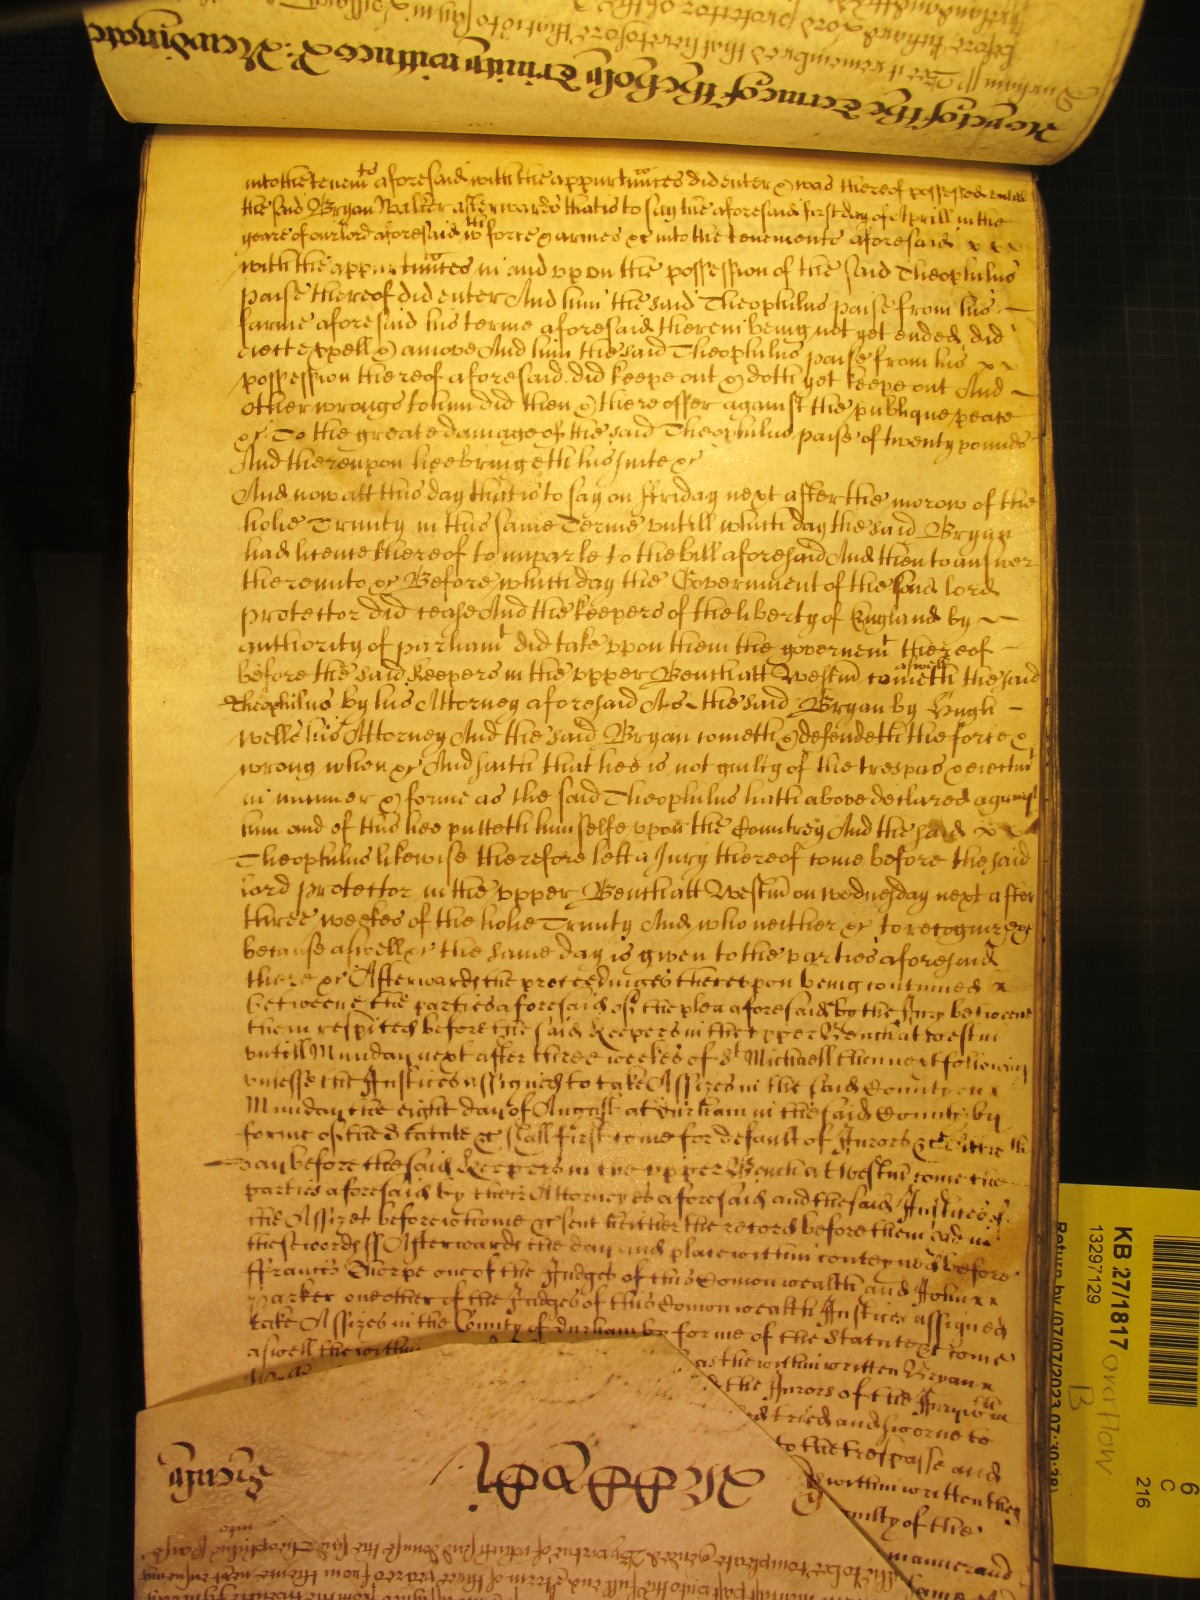 As yet of the Terme of the holy Trinity wittnes R: Newdigate
Durham ss Bee it remembred that heretofore that is to say in
before Richard Lord protector of the
into the tenemts aforesaid with the appurtnnces did enter & was thereof possessed untill
the said Bryan Walker afterwards that is to say the aforesaid first day of Aprill in the
yeare of our lord aforesaid wth force & armes &c into the tenements aforesaid x x x
with the appurtnnces in and vpon the possession of the said Theophilus
paise thereof did enter And him the said Theophilus paise from his
farme aforesaid his terme aforesaid therein being not yet ended, did
eiect expell & amove And him the said Theophilus paise from his x x
possession thereof aforesaid did keepe out & doth yet keepe out And
other wrongs to him did then & there offer against the publique peace
&c To the great damage of the said Theophilus paise of twenty pounds
And thereupon hee bringeth his suite &c
And now att this day that is to say on Friday next after the morow of the
holie Trinity in this same Terme vntill which day the said Bryan
had licence thereof to imparle to the bill aforesaid And then to answer
thereunto &c Before which day the Government of the said lord
Protector did cease And the keepers of the liberty of England by
authority of parliamt did take vpon them the governemt thereof
before the said Keepers in the vpper Bench att Westm cometh aswell the said
Theophilus by his Attorney aforesaid As the said Bryan by Hugh
Wells his Attorney And the said Bryan cometh & defendeth the force &
wrong when &c And saith that hee is not guilty of the trespas & eiectmt
in manner & forme as the said Theophilus hath above declared against
him and of this hee putteth himselfe vpon the Countrey And the said x x
Theophilus likewise therefore lett a Jury thereof come before the said
lord protector in the vpper Bench att Westm on wednesday next after
three weekes of the holie Trinity And who neither &c to recognize &c
because aswell &c the same day is given to the parties aforesaid
there &c Afterwards the proceedinges thereupon being continued x
betweene the parties aforesaid of the plea aforesaid by the Jury betweene
them respited before the said Keepers in the vpper Bench at westm
vntill Munday next after three weekes of St Michaell then next following
vnlesse the Justices assigned to take Assizes in the said County on x
Munday the eight day of August at Durham in the said County by
forme of the Statute &c shall first come for default of Jurors &c Att wch
day before the said Keepers in the vpper Bench at Westm come the
parties aforesaid by their Attorneyes aforesaid and the said Justices of
the Assizes before whome &c sent hether the record before them had in
these words ss Afterwards the day and place within conteyned before
Francis Thorpe one of the Judges of this Comonwealth and John x x
Parker one other of the Judges of this Comonwealth Justices assigned
take Assizes in the County of Durham by forme of the Statute &c come
aswell the within as the within written Bryan x
& the Jurors of the Jury wth in
tried and sworne to
to the trespasse and
within written the
guilty of the
manner and
same
Trinity
KB 27/1817
13297129
overflow
B
6
C
216
Return by (07/07/2023 07:30:38)